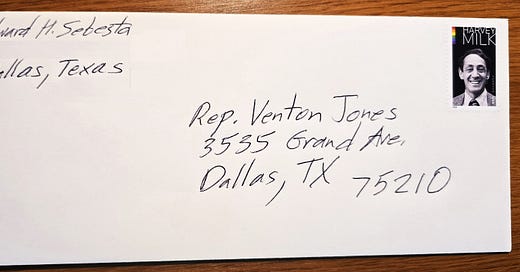 ward H. Sebesta
allas, Texas
HARVEY
MILK
Rep. Venton Jones
3535 Grand Ave.
Dallas, TX 75210